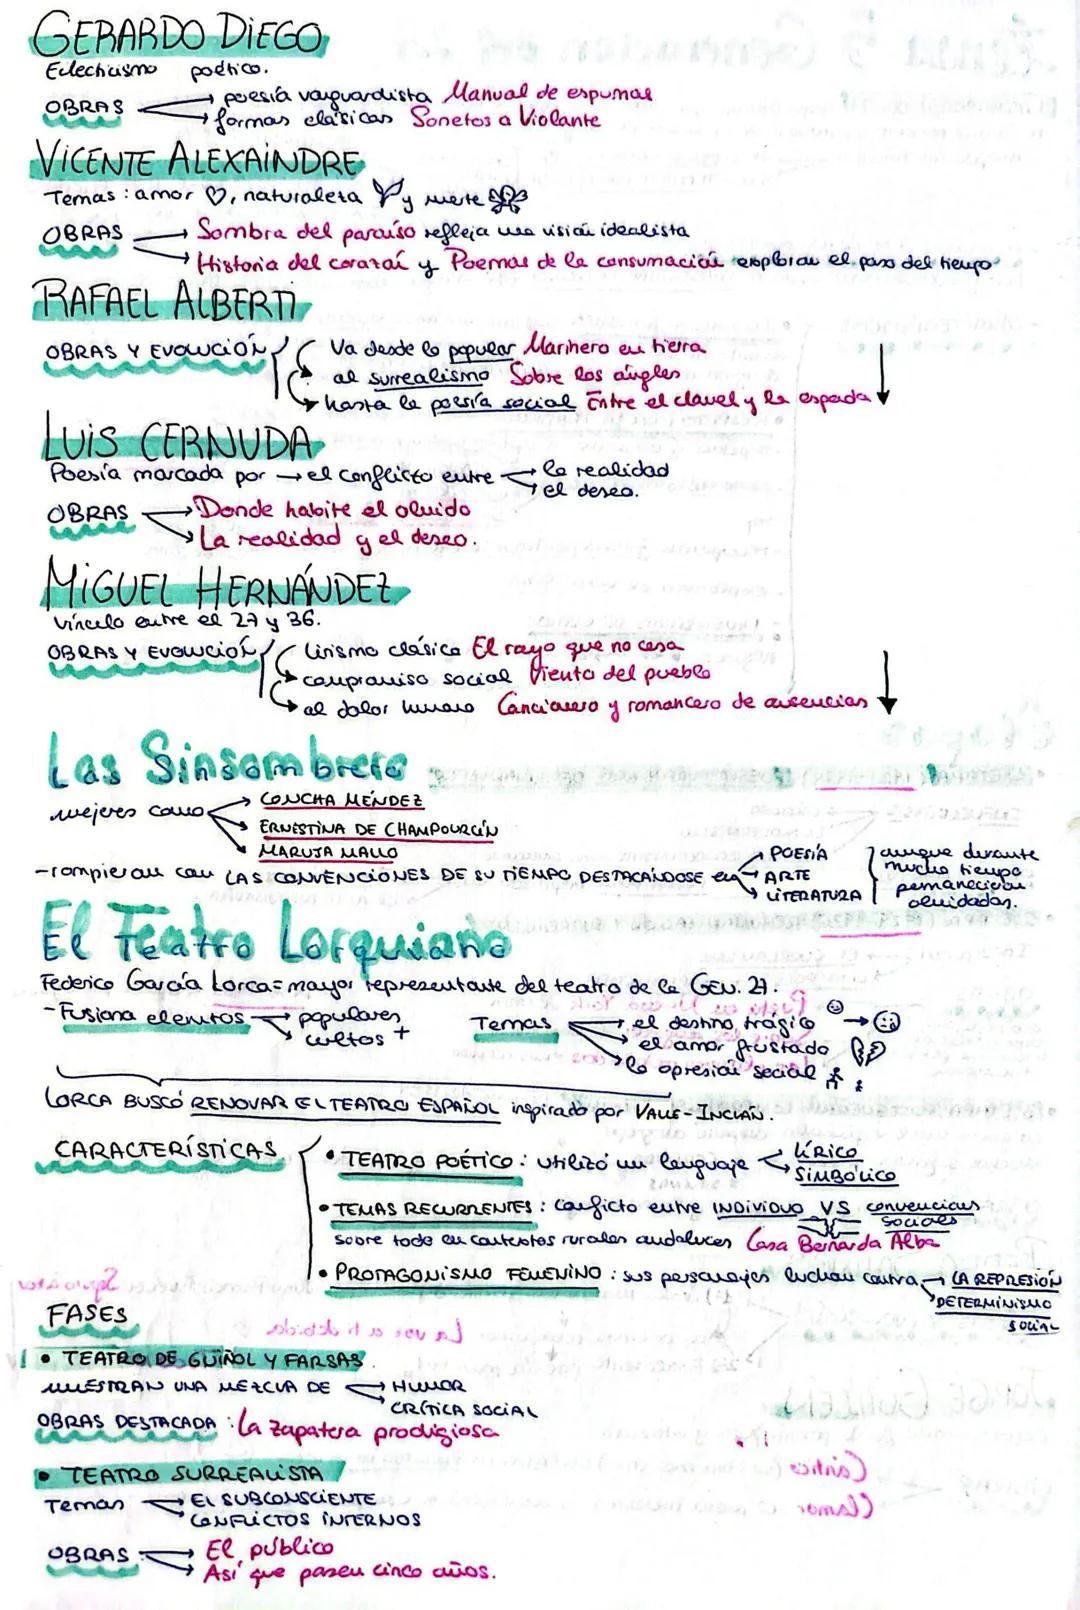 GERARDO DIEGO
Eclecticismo poético.
OBRAS → poesía vanguardista Manual de espumas
→ formas clásicas Sonetos a Violante
VICENTE ALEXAINDRE
Temas: amor ♡, naturaleza y muerte
OBRAS → Sombra del paraíso refleja una visión idealista
→ Historia del corazón y Poemas de la consumación exploran el paso del tiempo
RAFAEL ALBERTI
OBRAS Y EVOLUCIÓN Va desde lo popular Marinero en tierra
al surrealismo Sobre los ángles
→ hasta la poesía social Entre el clavel y la espada
LUIS CERNUDA
Poesía marcada por → el conflicto entre → la realidad
→ el deseo.
OBRAS → Donde habite el olvido
→ La realidad y el deseo.
MIGUEL HERNÁNDEZ
vínculo entre el 27 y 36.
OBRAS Y EVOLUCIÓN lirismo clásico El rayo que no cesa
→ compromiso social Viento del pueblo
→ al dolor humano Cancionero y romancero de ausencias
Las Sinsombrero
mujeres como → CONCHA MÉNDEZ
→ ERNESTINA DE CHAMPOURCÍN
→ MARUJA MALLO
- rompieron con LAS CONVENCIONES DE SU TIEMPO DESTACÁNDOSE en → POESÍA
→ ARTE
→ LITERATURA
aunque durante
mucho tiempo
permanecieron
olvidadas.
El Teatro Lorquiano
Federico García Lorca = mayor representante del teatro de la GEN. 27.
- Fusiona elemtos → populares
→ cultos +
Temas → el destino trágico →
→ el amor frustado
→ la opresión social
LORCA BUSCÓ RENOVAR EL TEATRO ESPAÑOL inspirado por VALLE-INCLÁN.
CARACTERÍSTICAS
• TEATRO POÉTICO: utilizó un lenguaje → LÍRICO
→ SIMBÓLICO
• TEMAS RECURRENTES: conficto entre INDIVIDUO VS convenciones
sociales
sobre todo en contextos rurales andaluces Casa Bernarda Alba
• PROTAGONISMO FEMENINO: sus personajes luchan contra → LA REPRESIÓN
→ DETERMINISMO
SOCIAL
FASES
• TEATRO DE GUIÑOL Y FARSAS
MUESTRAN UNA MEZCLA DE → HUMOR
→ CRÍTICA SOCIAL
OBRAS DESTACADA: La zapatera prodigiosa
• TEATRO SURREALISTA
Temas → EL SUBCONSCIENTE
→ CONFLICTOS INTERNOS
OBRAS → El público
→ Así que pasen cinco años.